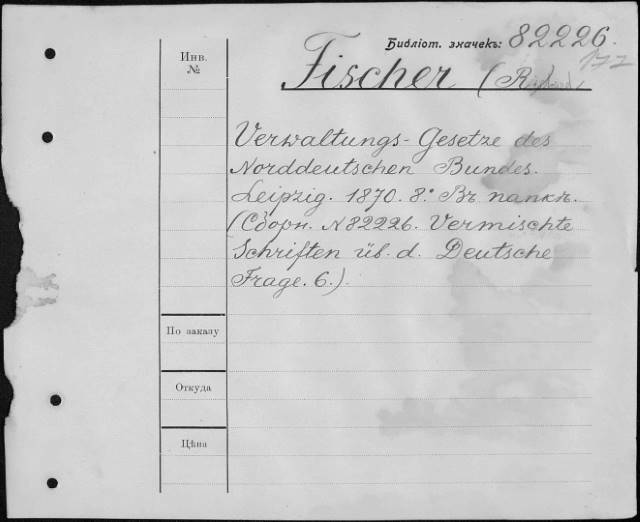 Библіот. значекъ: 82226.
177
Инв.
№
Fischer (R
Verwaltungs-Gesetze des
Norddeutschen Bundes.
Leipzig. 1870. 8.° Въ папкѣ.
(Сборн. N 82226. Vermischte
Schriften üb. d. Deutsche
Frage. 6.)
По заказу
Откуда
Цѣна